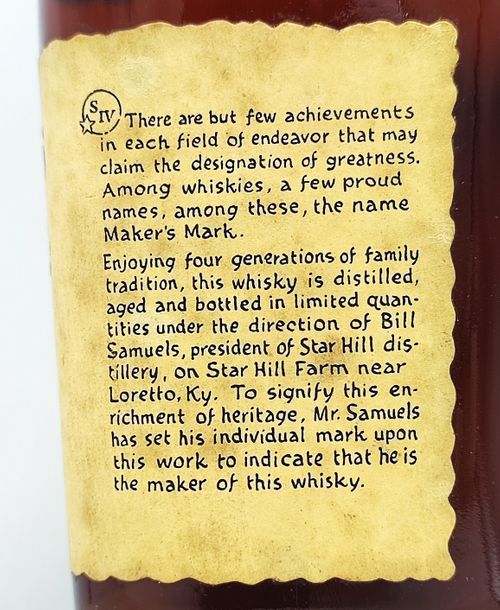 SIV
There are but few achievements
in each field of endeavor that may
claim the designation of greatness.
Among whiskies, a few proud
names, among these, the name
Maker's Mark.
Enjoying four generations of family
tradition, this whisky is distilled,
aged and bottled in limited quan-
tities under the direction of Bill
Samuels, president of Star Hill dis-
tillery, on Star Hill Farm near
Loretto, Ky. To signify this en-
richment of heritage, Mr. Samuels
has set his individual mark upon
this work to indicate that he is
the maker of this whisky.